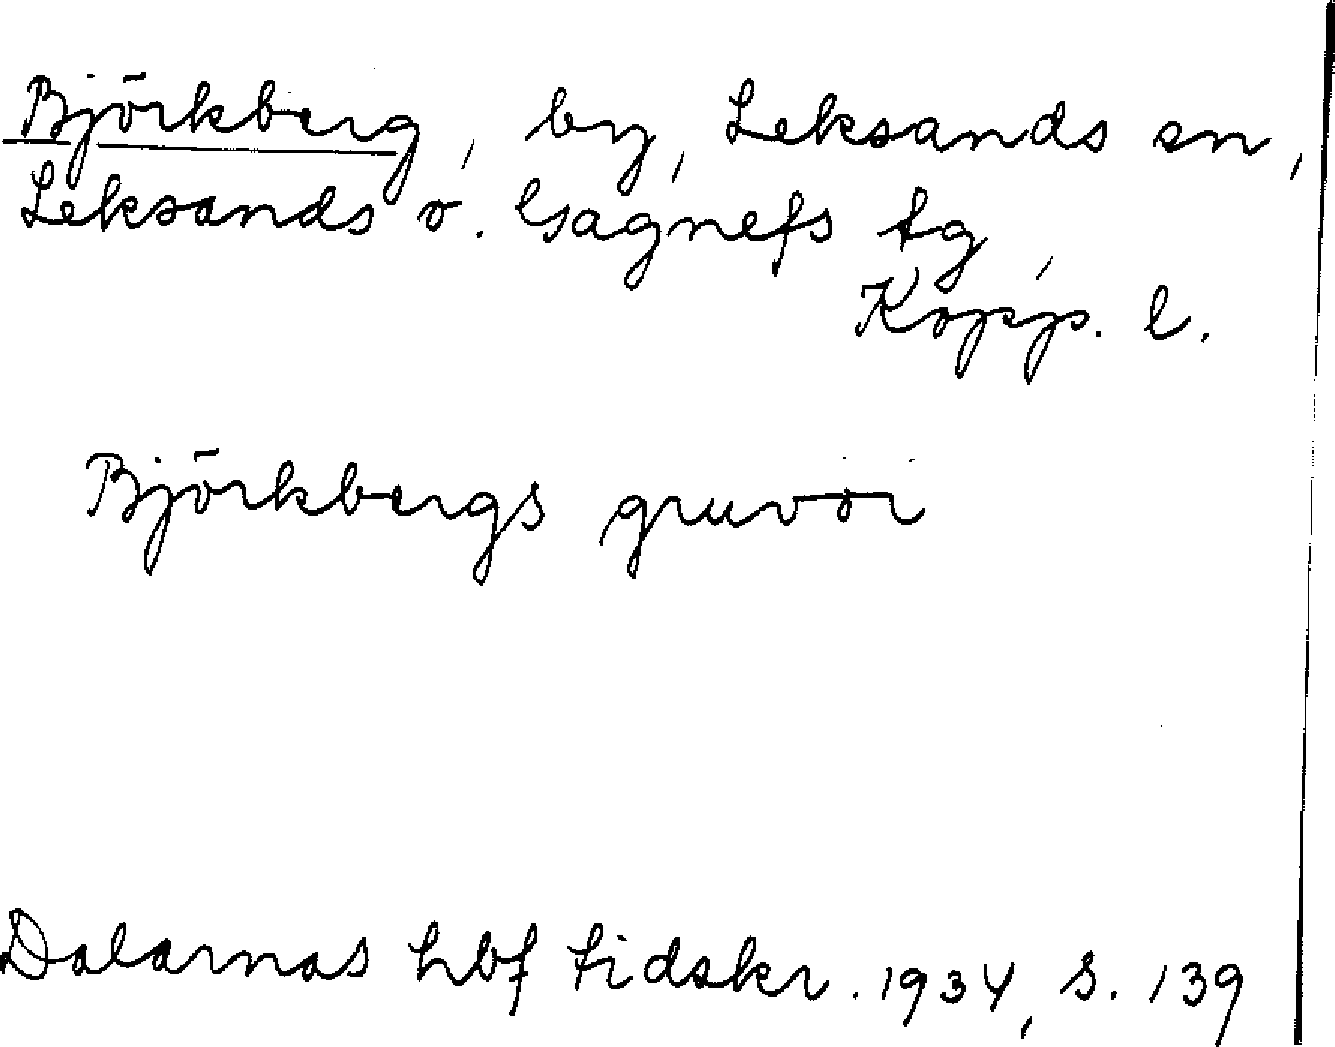 Björkberg, by, Leksands sn,
Leksands o. Gagnefs tg,
Kopp. l.
Björkbergs gruvor
Dalarnas hbf tidskr. 1934, s. 139